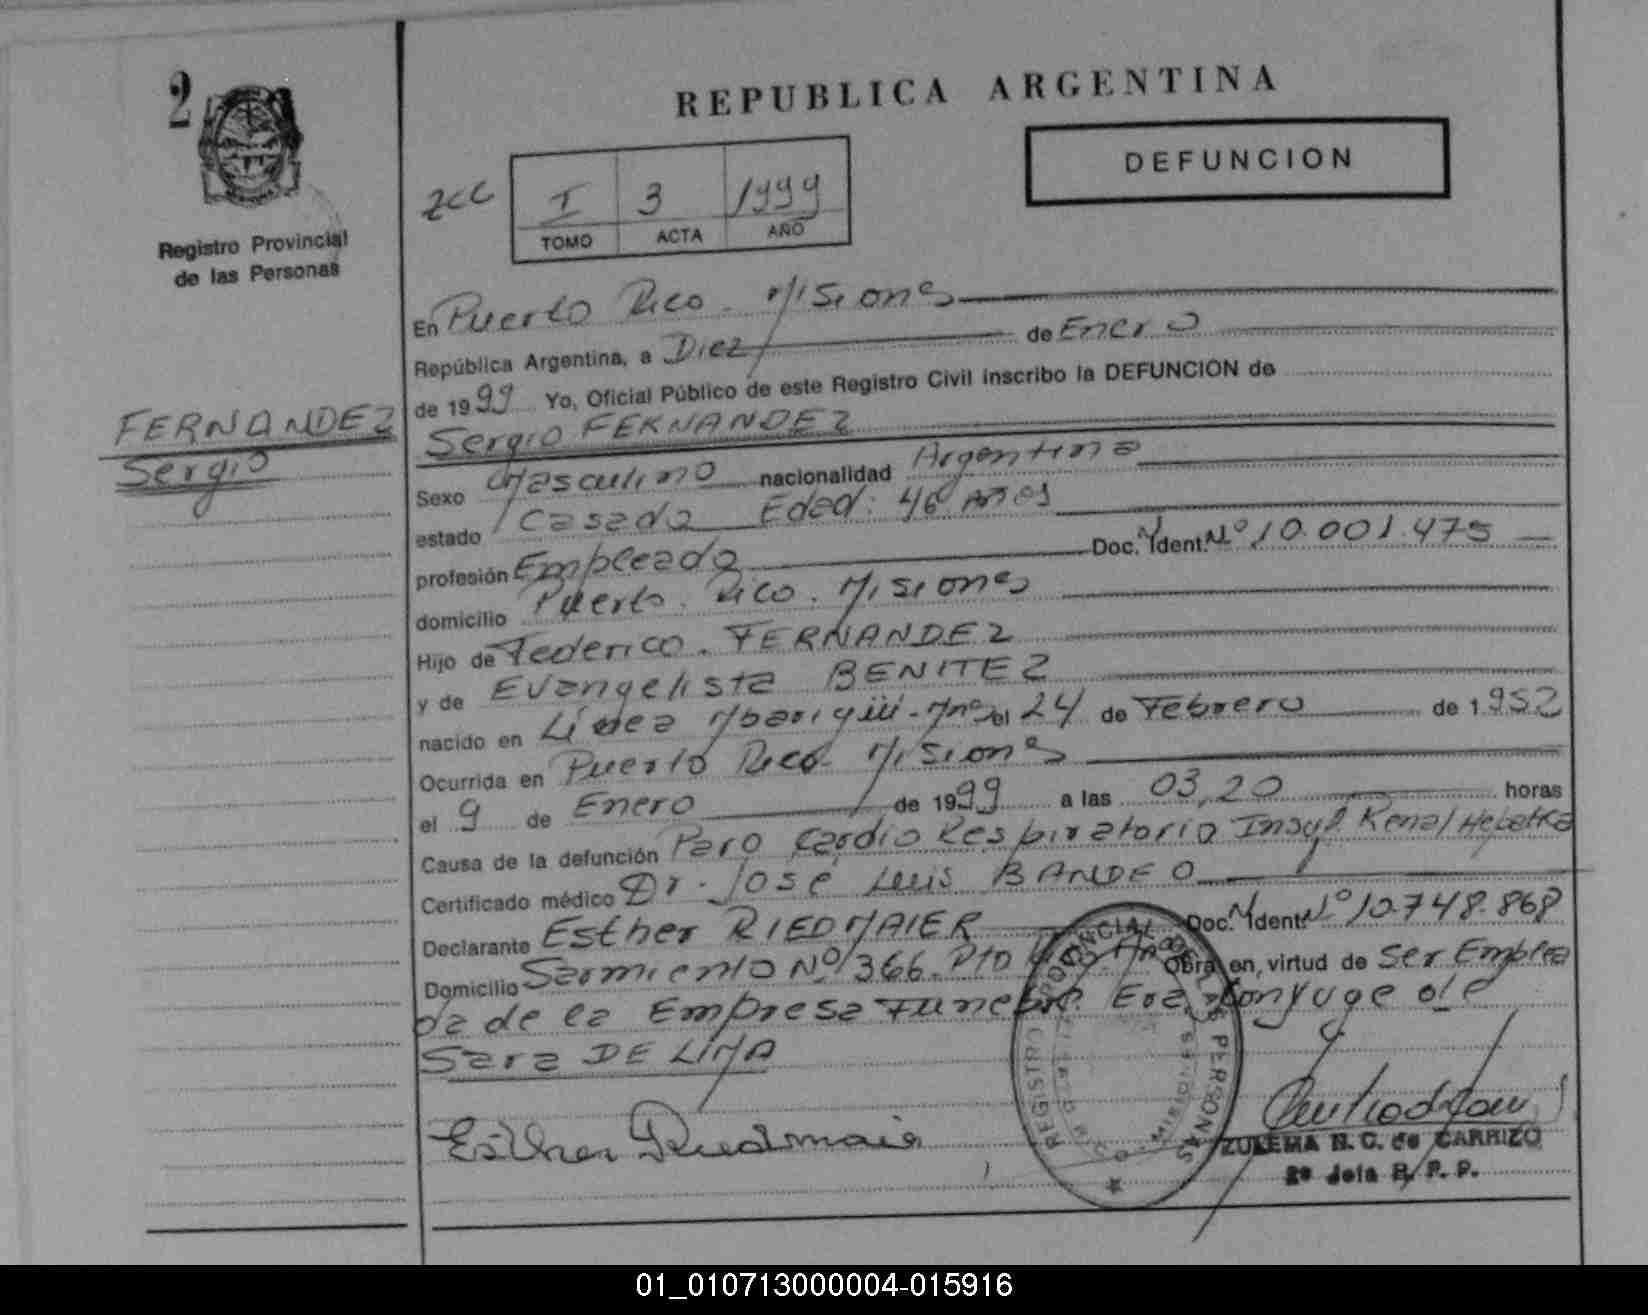 2
REPUBLICA ARGENTINA
DEFUNCION
Registro Provincial
de las Personas
I 3 1999
TOMO ACTA AÑO
FERNANDEZ
Sergio
En Puerto Rico. Misiones
República Argentina, a Diez de Enero
de 1999 Yo, Oficial Público de este Registro Civil inscribo la DEFUNCION de
Sergio FERNANDEZ
Sexo Masculino nacionalidad Argentina
estado Casado Edad: 46 Años
profesión Empleado Doc. Ident. Nº 10.001.475
domicilio Puerto. Rico. Misiones
Hijo de Federico. FERNANDEZ
y de Evangelista BENITEZ
nacido en Línea el 24 de Febrero de 1952
Ocurrida en Puerto Rico. Misiones
el 9 de Enero de 1999 a las 03,20 horas
Causa de la defunción Paro Cardio Respiratorio Renal Hepatica
Certificado médico Dr. José Luis BANDEO
Declarante Esther RIEDMAIER Doc. Ident. Nº 10.748.868
Domicilio Sarmiento Nº 366. Pto Obra en, virtud de Ser Emplea
da de la Empresa Funebre. Era Conyuge de
Sara DE LIMA
REGISTRO PROVINCIAL DE LAS PERSONAS
MISIONES
Esther Riedmaier
ZULEMA N. C. de CARRIZO
2º Jefa R. P. P.
01_010713000004-015916